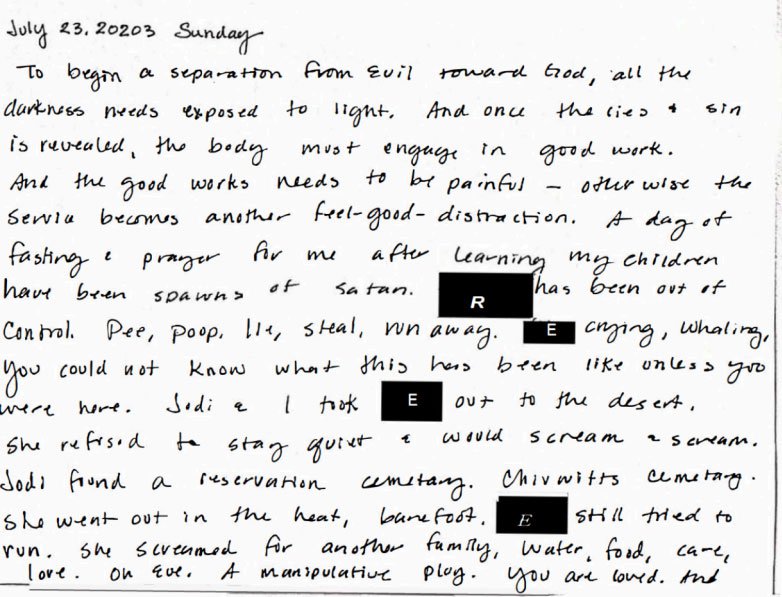 July 23, 20203 Sunday
To begin a separation from evil toward God, all the
darkness needs exposed to light. And once the lies & sin
is revealed, the body must engage in good work.
And the good works needs to be painful – otherwise the
service becomes another feel-good-distraction. A day of
fasting & prayer for me after learning my children
have been spawns of satan. R has been out of
control. Pee, poop, lie, steal, run away. E crying, whaling,
You could not know what this has been like unless you
were here. Jodi & I took E out to the desert.
She refised to stay quiet & would scream & scream.
Jodi found a reservation cemetary. Chivwitts cemetary.
She went out in the heat, barefoot. E still tried to
run. She screamed for another family, water, food, care,
love. Oh Eve. A manipulative ploy. You are loved. And